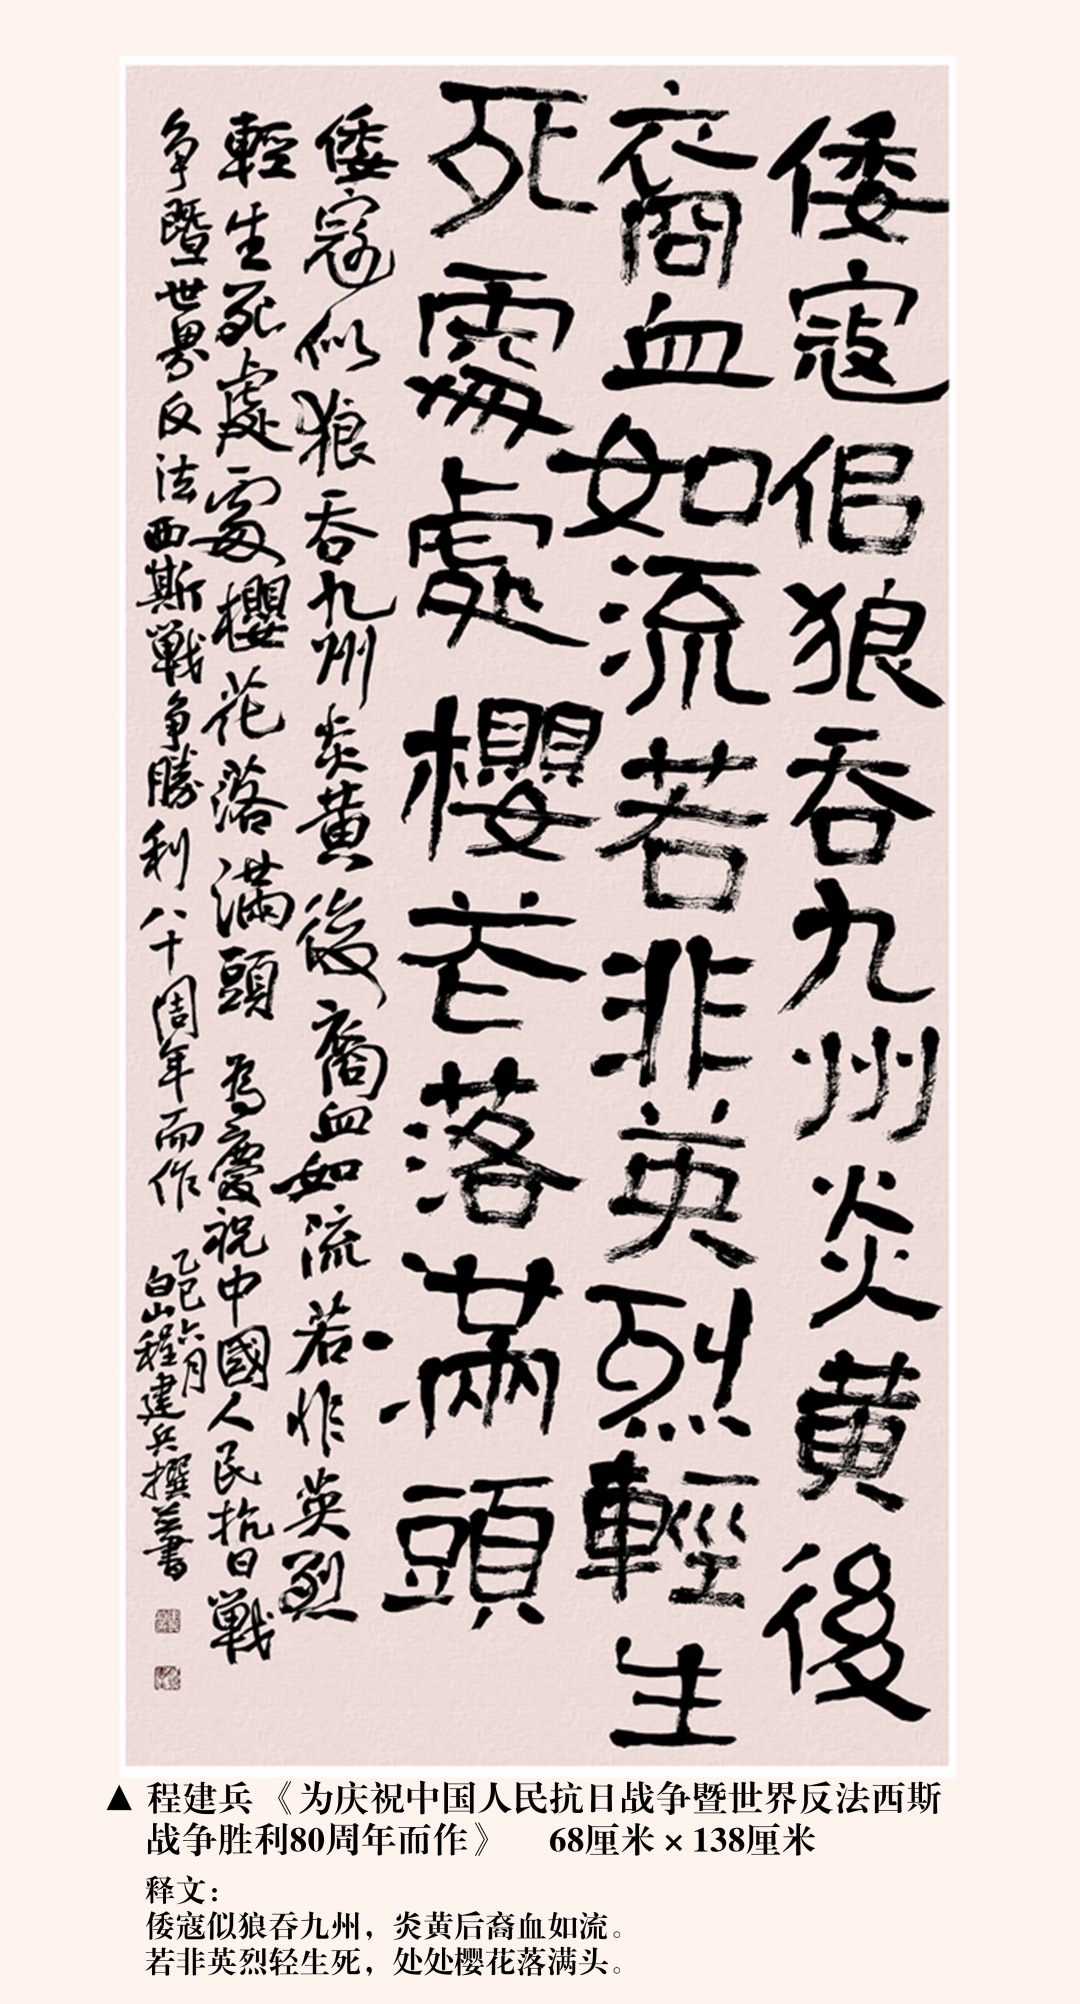 倭寇佀狼吞九州炎黄後
裔血如流若非英烈輕生
死處處櫻花落滿頭
倭寇似狼吞九州炎黄後裔血如流若非英烈
輕生死處處櫻花落滿頭 為慶祝中國人民抗日戰
争暨世界反法西斯戰争勝利八十周年而作 乙巳六月
白山程建兵撰並書
▲ 程建兵《为庆祝中国人民抗日战争暨世界反法西斯
战争胜利80周年而作》 68厘米 × 138厘米
释文：
倭寇似狼吞九州，炎黄后裔血如流。
若非英烈轻生死，处处樱花落满头。